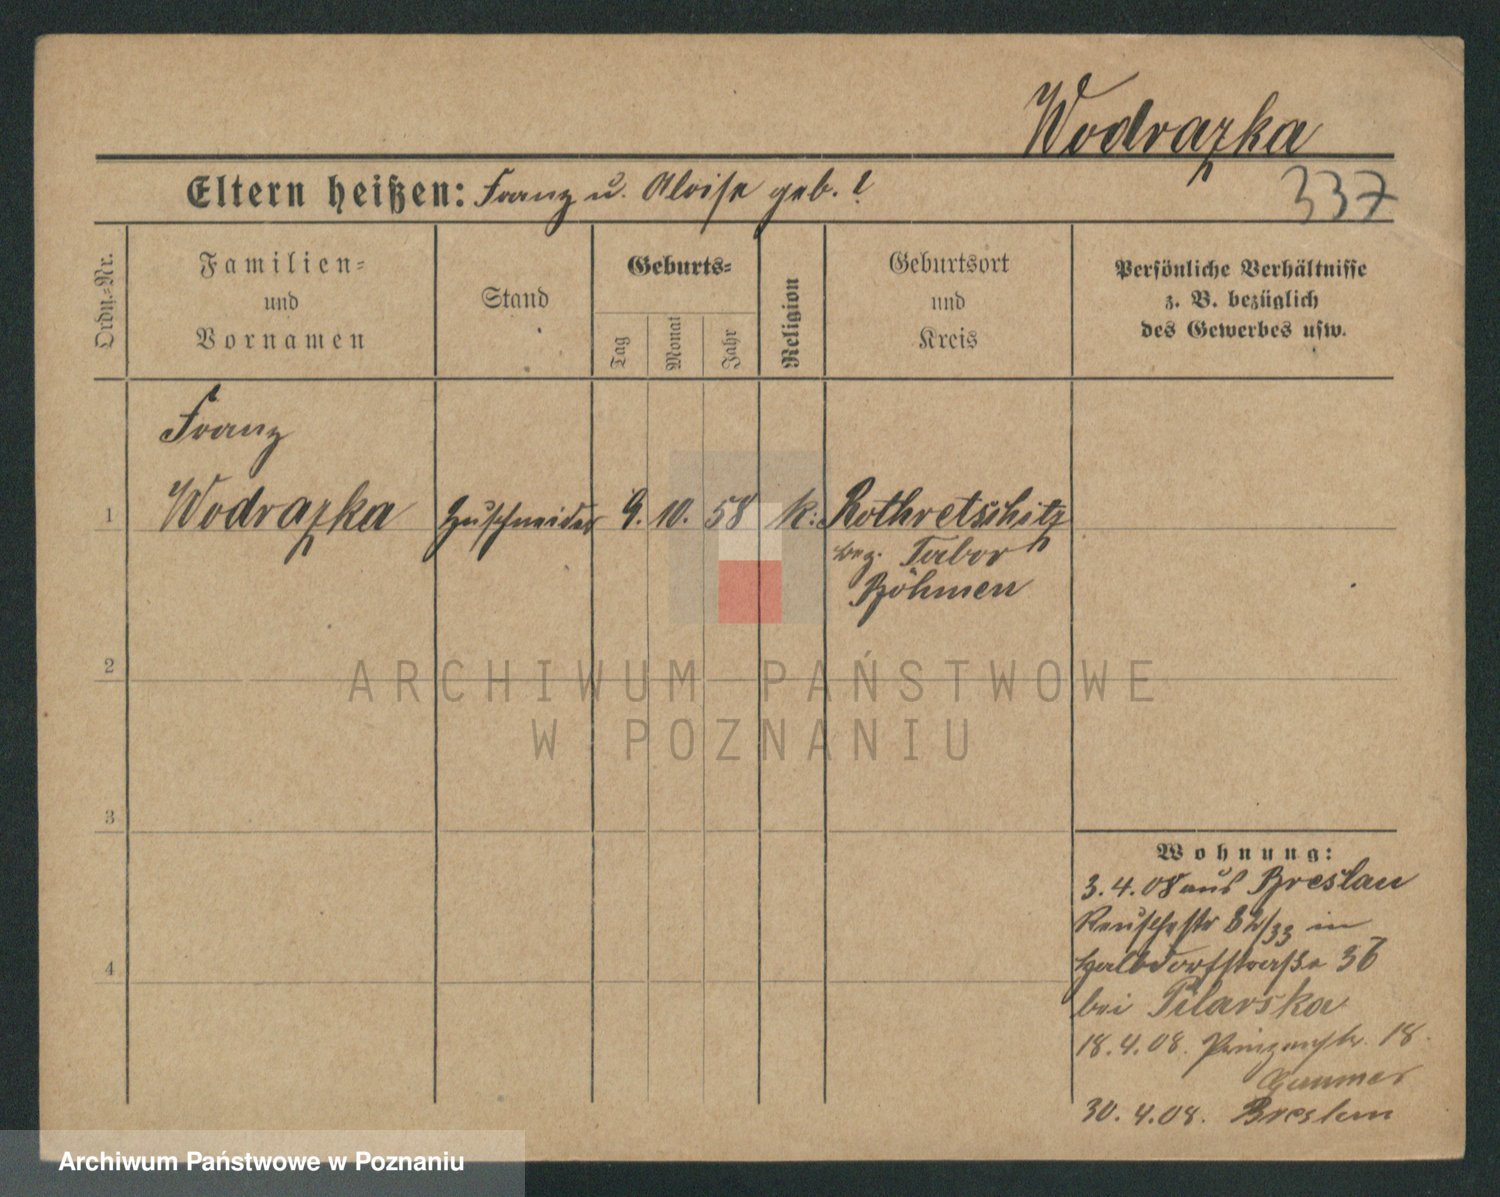 Wodrazka
Eltern heißen: Franz u. Aloise geb. ?
337
Ordn.-Nr.
Familien-
und
Vornamen
Stand
Geburts-
Tag
Monat
Jahr
Religion
Geburtsort
und
Kreis
Persönliche Verhältnisse
z. B. bezüglich
des Gewerbes usw.
Franz
1 Wodrazka Zuschneider 9. 10. 58 k: Rothretschitz
bez. Tabor
Böhmen
2
3
4
ARCHIWUM PAŃSTWOWE
W POZNANIU
Wohnung:
3.4.08 aus Breslau
Reuschestr 32/33 in
Halbdorfstraße 36
bei Pilarska
18.4.08. Prinzenstr. 18.
30.4.08. Breslau
Archiwum Państwowe w Poznaniu